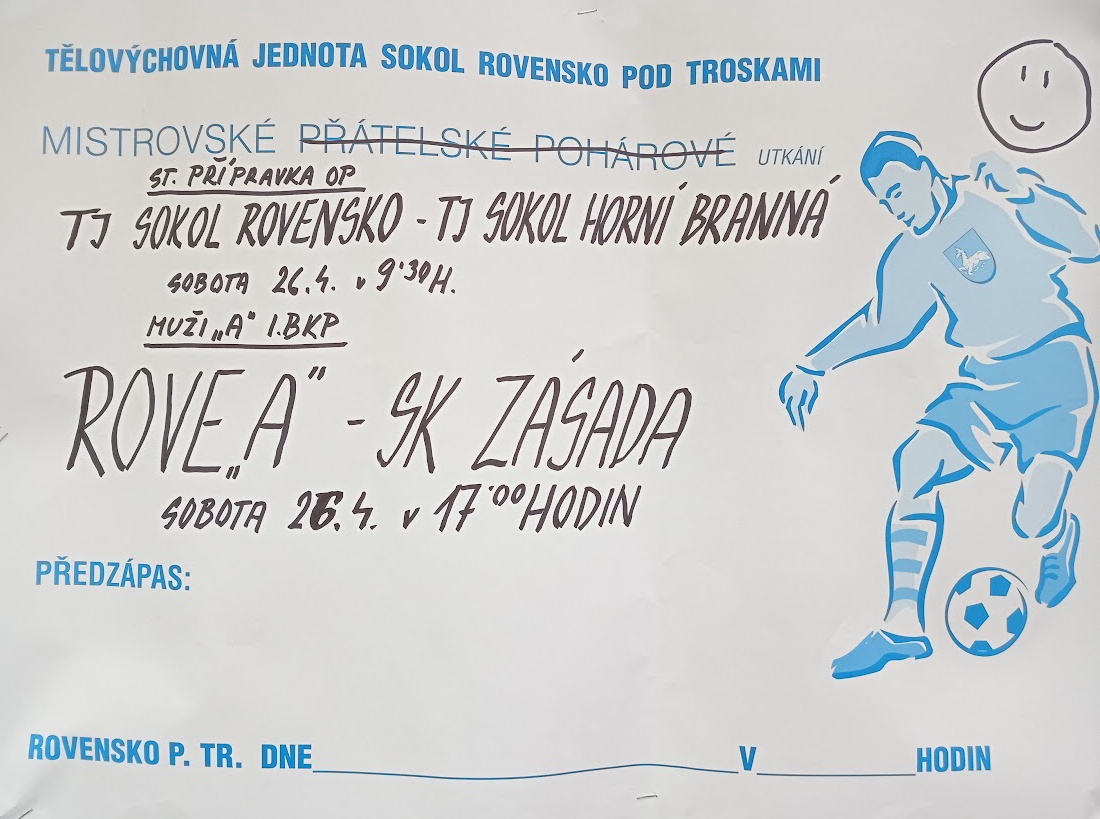 TĚLOVÝCHOVNÁ JEDNOTA SOKOL ROVENSKO POD TROSKAMI
MISTROVSKÉ PŘÁTELSKÉ POHÁROVÉ UTKÁNÍ
ST. PŘÍPRAVKA OP
TJ SOKOL ROVENSKO - TJ SOKOL HORNÍ BRANNÁ
SOBOTA 26.4. v 9:30H.
MUŽI „A" I.BKP
ROVE„A" - SK ZÁSADA
SOBOTA 26.4. v 17:00 HODIN
PŘEDZÁPAS:
ROVENSKO P. TR. DNE V HODIN